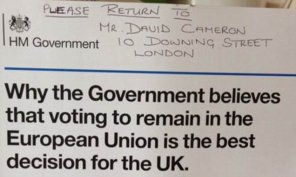 PLEASE RETURN TO
MR. DAVID CAMERON
10 DOWNING STREET
LONDON
HM Government
Why the Government believes
that voting to remain in the
European Union is the best
decision for the UK.